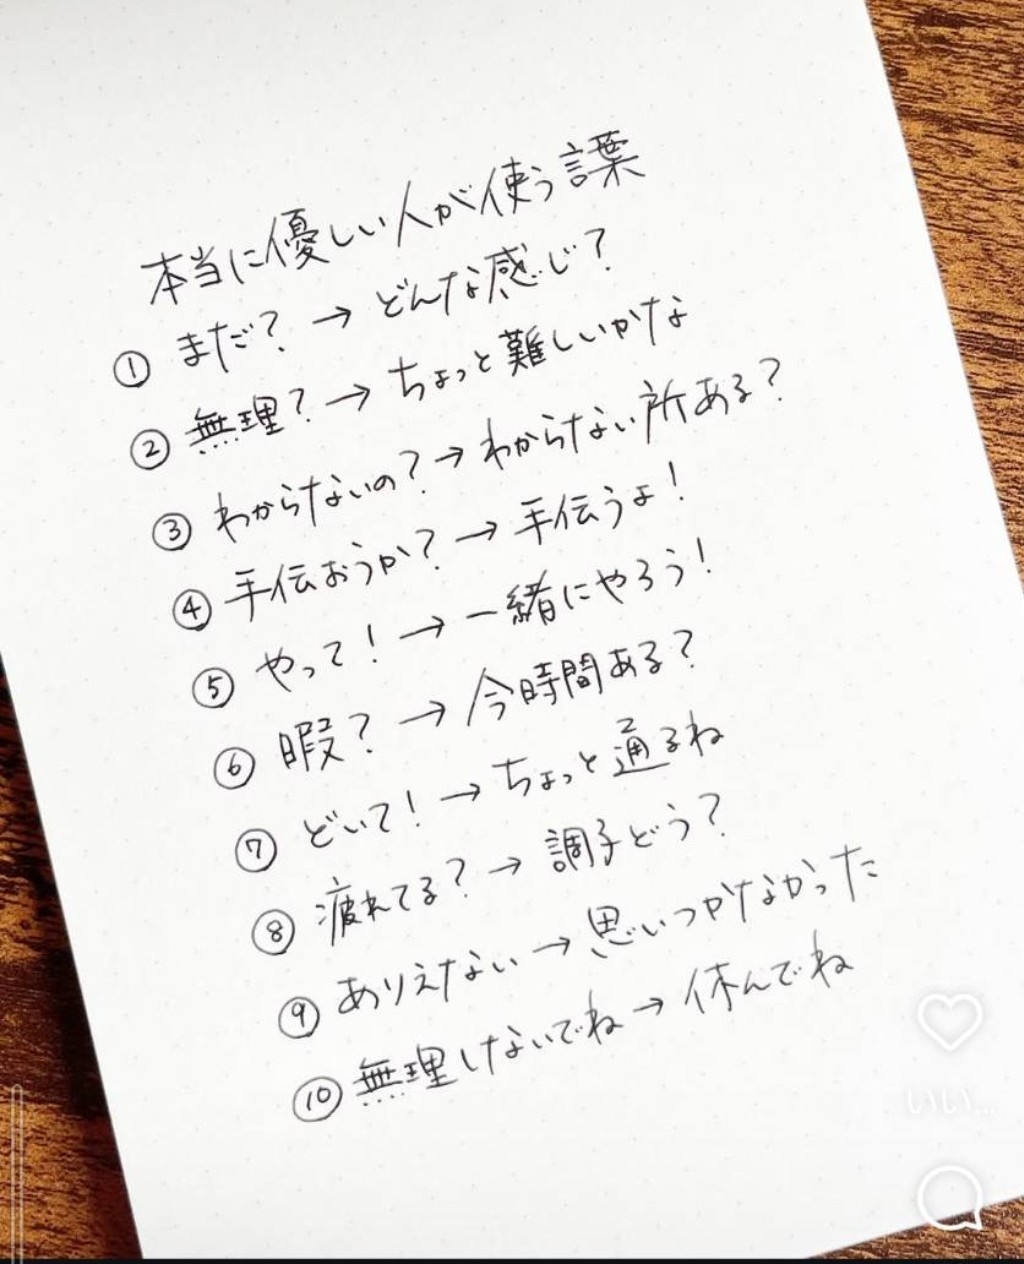 本当に優しい人が使う言葉
① まだ? → どんな感じ?
② 無理? → ちょっと難しいかな
③ わからないの? → わからない所ある?
④ 手伝おうか? → 手伝うよ!
⑤ やって! → 一緒にやろう!
⑥ 暇? → 今時間ある?
⑦ どいて! → ちょっと通るね
⑧ 疲れてる? → 調子どう?
⑨ ありえない → 思いつかなかった
⑩ 無理しないでね → 休んでね
いい...